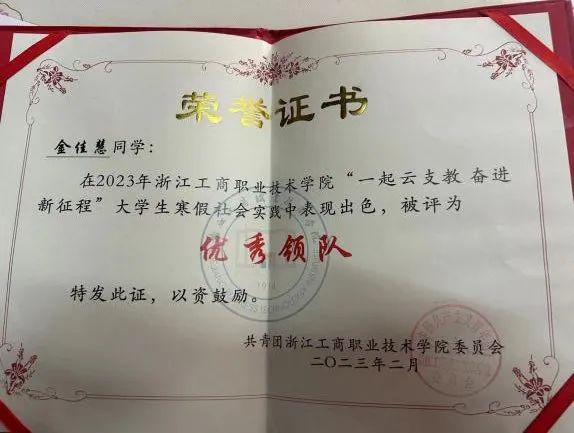 荣誉证书
金佳慧同学：
在2023年浙江工商职业技术学院“一起云支教 奋进
新征程”大学生寒假社会实践中表现出色，被评为
优秀领队
特发此证，以资鼓励。
1914
共青团浙江工商职业技术学院委员会
二〇二三年二月